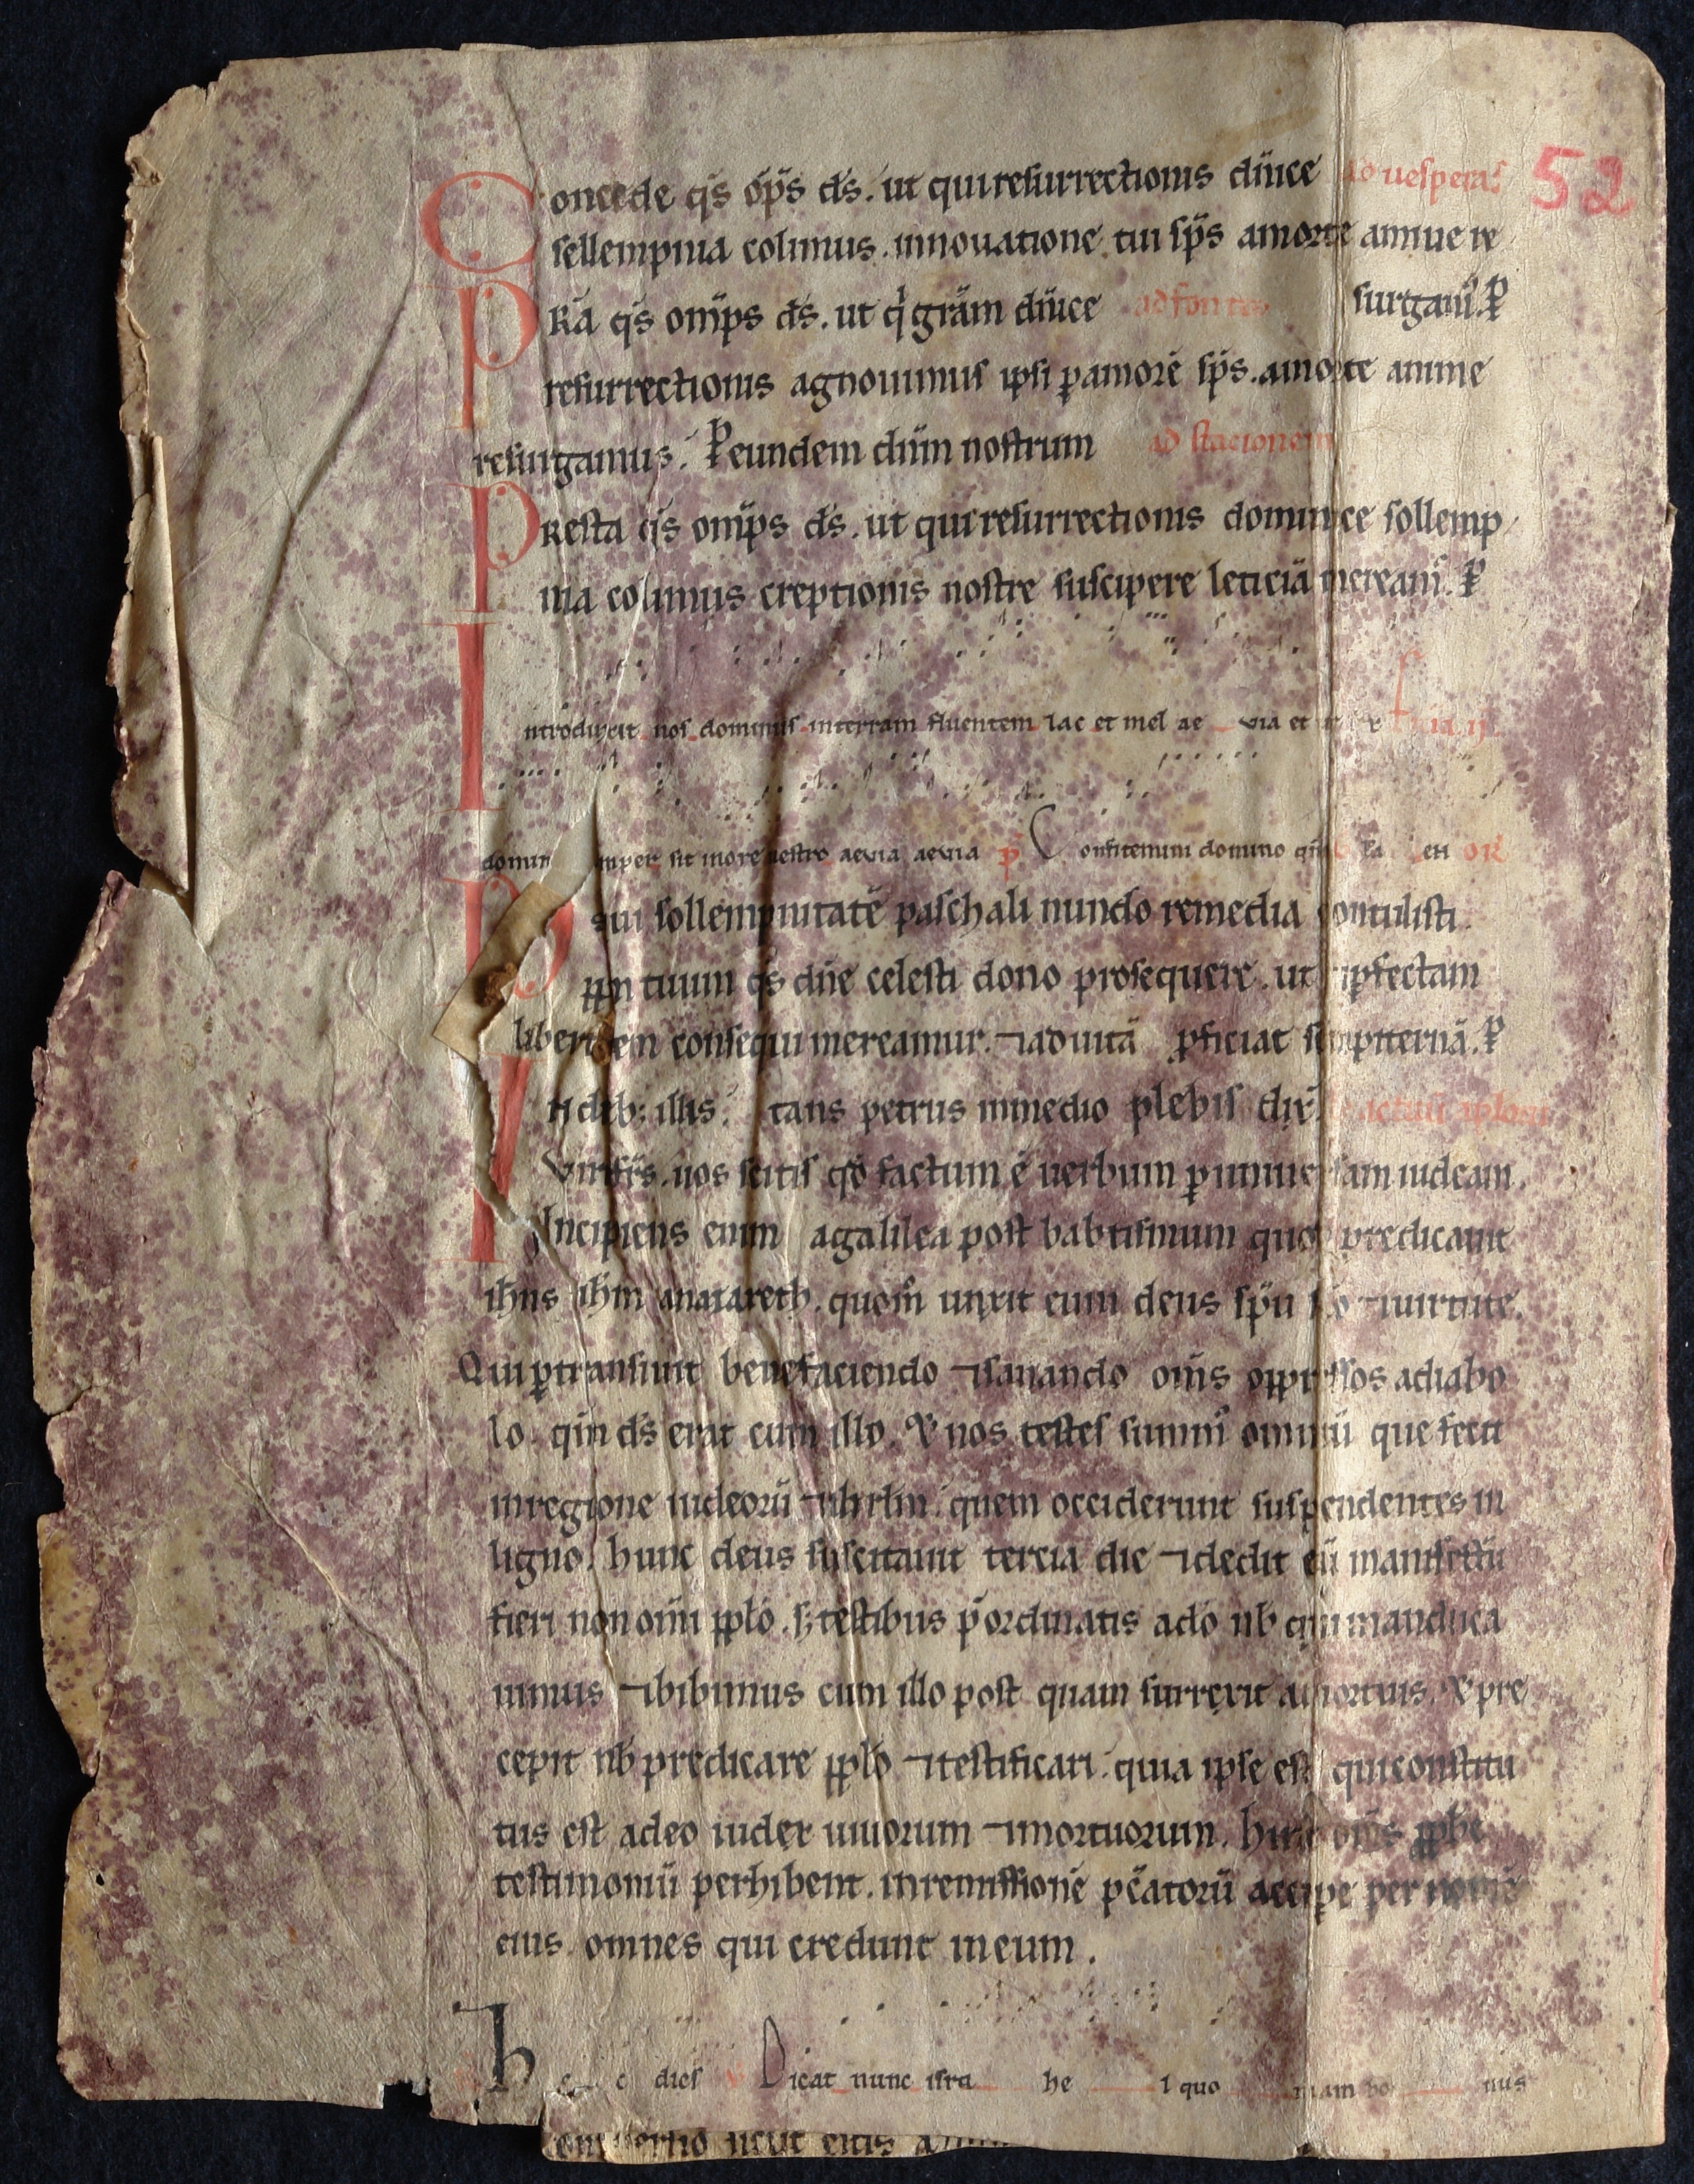 Concede qs̄ om̄ps ds̄. ut qui resurrectionis dn̄ice ad uesperas 52
sellempnia colimus. innouatione tui sp̄s a morte anime re
PRā qs̄ om̄ps ds̄. ut q' grām dn̄ice ad fontes surgam'. P
resurrectionis agnouimus ipsi p amorē sp̄s. a morte anime
resurgamus. P eundem dn̄m nostrum ad stacionem
PResta qs̄ om̄ps ds̄. ut qui resurrectionis dominice sollemp
nia colimus ereptionis nostre suscipere leticiā meream'. P
Introduxit nos dominus in terram fluentem lac et mel ae uia et ut
domini semper sit in ore uestro aeuia aeuia p Confitemini domino
Ds qui sollempnitatē paschali mundo remedia contulisti.
ppłm tuum qs̄ dn̄e celesti dono prosequere. ut ⁊ pfectam
libertatem consequi mereamur. ⁊ ad uitā pficiat sempiternā. P
In dieb; illis. Stans petrus in medio plebis dix̄. Lc̄ actuū aplorū
Viri frs̄. uos scitis qd̄ factum ē uerbum p uniuersam iudeam.
Incipiens enim a galilea post babtismum quod predicauit
ioh̄ns ih̄m a nazareth. quom̄ unxit eum deus sp̄u sc̄o ⁊ uirtute.
Qui ptransiuit benefaciendo ⁊ sanando om̄s oppressos a diabo
lo. qm̄ ds̄ erat cum illo. Et nos testes sumus omniū que fecit
in regione iudeorū ⁊ ih̄rlm̄. quem occiderunt suspendentes in
ligno. hunc deus suscitauit tercia die ⁊ dedit eū manifestū
fieri non om̄i pplo. s; testibus p̄ordinatis a dō nb̄ qui manduca
uimus ⁊ bibimus cum illo post quam surrexit a mortuis. Et pre
cepit nb̄ predicare pplō ⁊ testificari. quia ipse est qui constitu
tus est a deo iudex uiuorum ⁊ mortuorum. huic om̄s pphe
testimoniū perhibent. in remissionē pc̄atorū accipe per nomē
eius. omnes qui credunt in eum.
hec dies V Dicat nunc isra he l quo niam bo nus